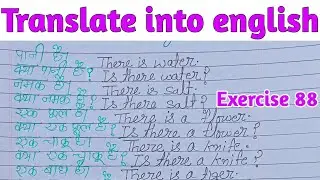 Translate into english
पानी है। There is water.
क्या पानी है? Is there water?
नमक है। There is salt.
क्या नमक है? Is there salt?
एक फूल है। There is a flower.
क्या एक फूल है? Is there a flower?
एक चाकू है। There is a knife.
क्या एक चाकू है? Is there a knife?
एक बाघ है। There is a tiger.
Exercise 88